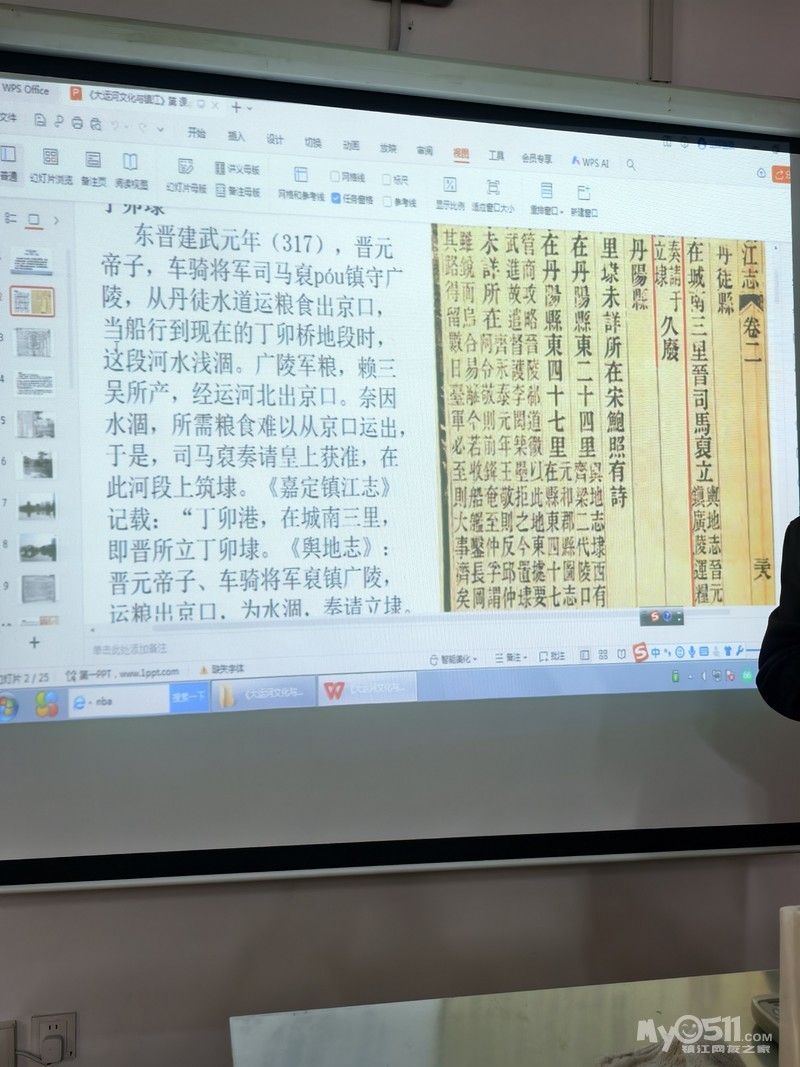 WPS Office
《大运河文化与镇江》第
文件
开始
插入
设计
切换
动画
放映
审阅
视图
工具
会员专享
WPS AI
普通
幻灯片浏览
备注页
阅读视图
幻灯片母版
讲义母版
备注母版
网格和参考线
网格线
任务窗格
标尺
参考线
显示比例
适应窗口大小
重排窗口
新建窗口
丁卯埭
东晋建武元年（317），晋元
帝子，车骑将军司马裒póu镇守广
陵，从丹徒水道运粮食出京口，
当船行到现在的丁卯桥地段时，
这段河水浅涸。广陵军粮，赖三
吴所产，经运河北出京口。奈因
水涸，所需粮食难以从京口运出，
于是，司马裒奏请皇上获准，在
此河段上筑埭。《嘉定镇江志》
记载：“丁卯港，在城南三里，
即晋所立丁卯埭。《舆地志》：
晋元帝子、车骑将军裒镇广陵，
运粮出京口，为水涸，奏请立埭。
江志
卷二
丹徒縣
在城南三里晉司馬裒立
輿地志晉元
鎮廣陵運糧
奏請于
立埭
久廢
丹陽縣
里埭未詳所在宋鮑照有詩
在丹陽縣東二十四里
輿地志埭西有
齊梁二代陵口
在丹陽縣東四十七里
元和郡縣圖志
在縣東四十七
2
3
4
5
6
7
8
9
单击此处添加备注
幻灯片 2 / 25
第一PPT，www.1ppt.com
缺失字体
智能美化
备注
批注
中
nba
搜索一下
《大运河文化与...
《大运河文化与...
66
My0511.COM
镇江网友之家